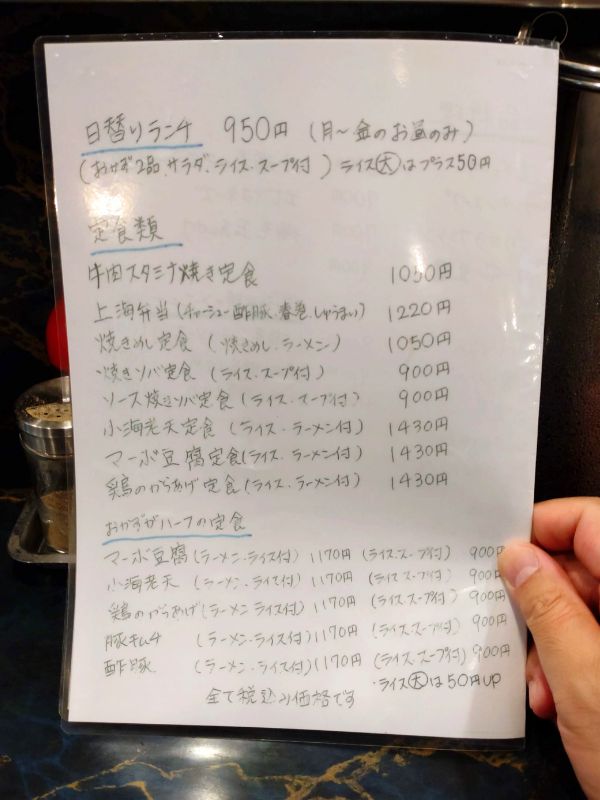 日替りランチ 950円 (月～金のお昼のみ)
(おかず2品、サラダ、ライス、スープ付) ライス大はプラス50円
定食類
牛肉スタミナ焼き定食 1050円
上海弁当(チャーシュー、酢豚、春巻、しゅうまい) 1220円
焼きめし定食 (焼きめし、ラーメン) 1050円
焼きソバ定食 (ライス、スープ付) 900円
ソース焼きソバ定食 (ライス、スープ付) 900円
小海老天定食 (ライス、ラーメン付) 1430円
マーボ豆腐定食(ライス、ラーメン付) 1430円
鶏のからあげ定食(ライス、ラーメン付) 1430円
おかずがハーフの定食
マーボ豆腐 (ラーメン・ライス付) 1170円 (ライス、スープ付) 900円
小海老天 (ラーメン、ライス付) 1170円 (ライス、スープ付) 900円
鶏のからあげ(ラーメン ライス付) 1170円 (ライス、スープ付) 900円
豚キムチ (ラーメン・ライス付) 1170円 (ライス、スープ付) 900円
酢豚 (ラーメン・ライス付) 1170円 (ライス、スープ付) 900円
・ライス大は50円UP
全て税込み価格です